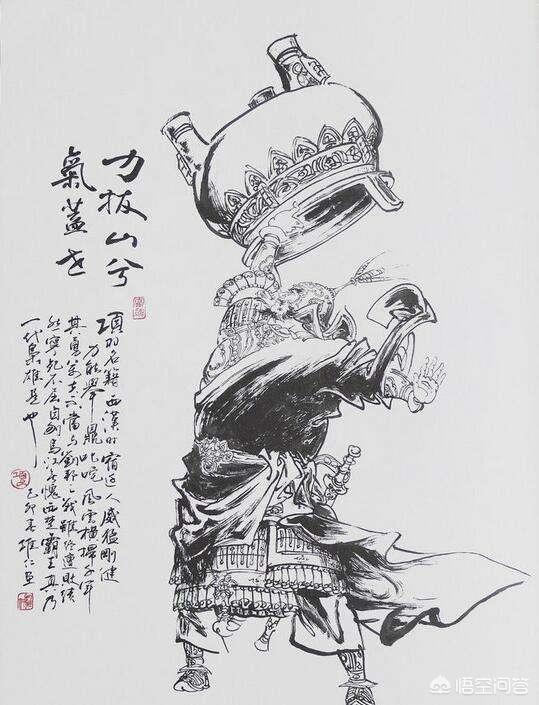 力拔山兮
氣蓋世
項羽名籍西漢時宿迁人威猛剛健
力能舉鼎叱咤風雲横掃千軍
其勇万夫不當与劉邦之戰雖終連敗績
然寧死不屈自刎烏江无愧西楚霸王真乃
一代梟雄是也
己卯春雄仁
悟空问答